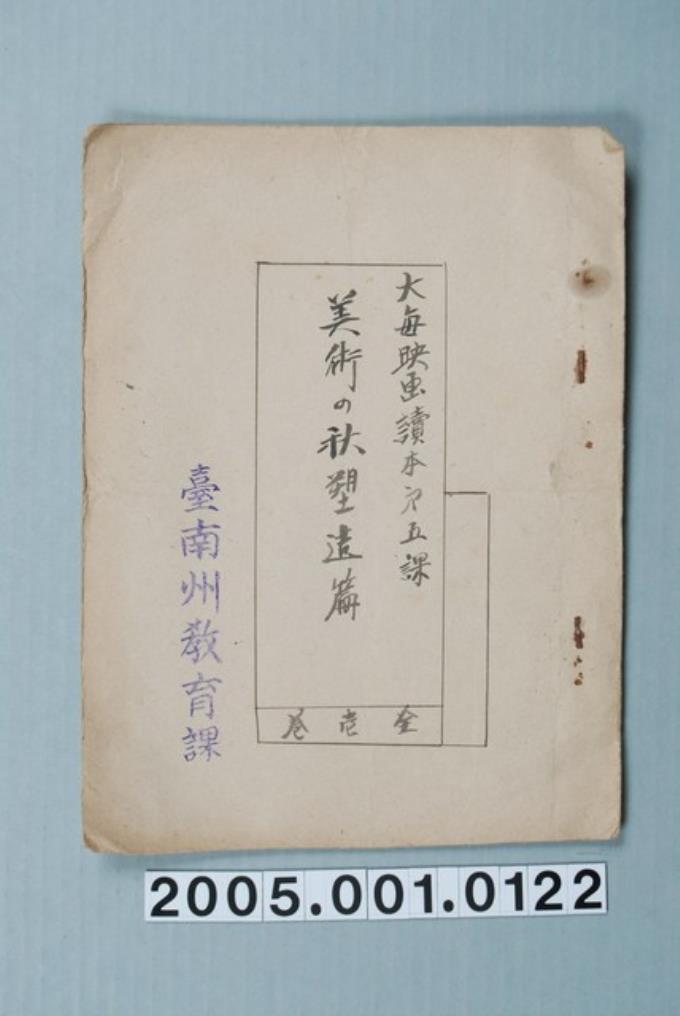 大每映画讀本㐧五課
美術の秋塑造篇
全壱巻
臺南州教育課
2005.001.0122